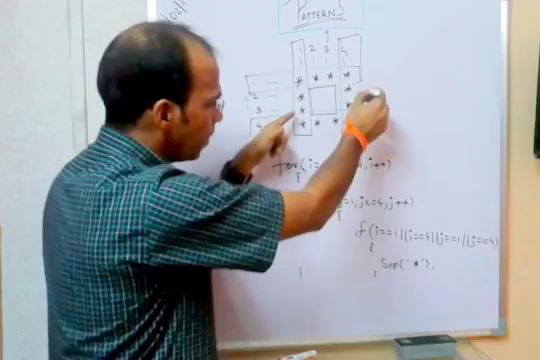 PATTERNS
j
1 2 3 4
1 * * * *
2 *
3 *
4 * * *
for(i= 4,i++)
{
j=1,j<=4,j++)
{
if(i==1||i==4||j==1||j==4)
{
Sop("*"),